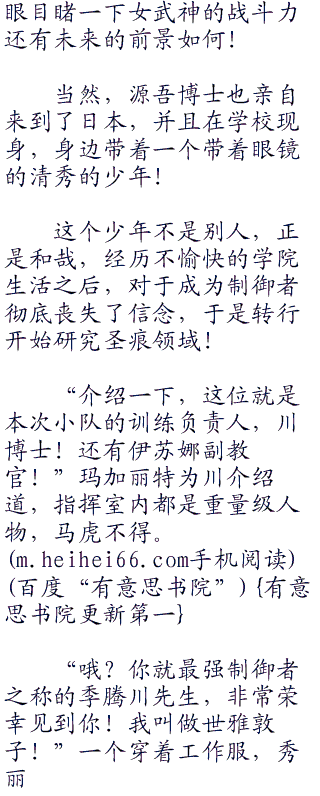 眼目睹一下女武神的战斗力
还有未来的前景如何！
当然，源吾博士也亲自
来到了日本，并且在学校现
身，身边带着一个带着眼镜
的清秀的少年！
这个少年不是别人，正
是和哉，经历不愉快的学院
生活之后，对于成为制御者
彻底丧失了信念，于是转行
开始研究圣痕领域！
“介绍一下，这位就是
本次小队的训练负责人，川
博士！还有伊苏娜副教
官！”玛加丽特为川介绍
道，指挥室内都是重量级人
物，马虎不得。
(m.heihei66.com手机阅读)
(百度“有意思书院”){有意
思书院更新第一}
“哦？你就最强制御者
之称的季腾川先生，非常荣
幸见到你！我叫做世雅敦
子！”一个穿着工作服，秀
丽